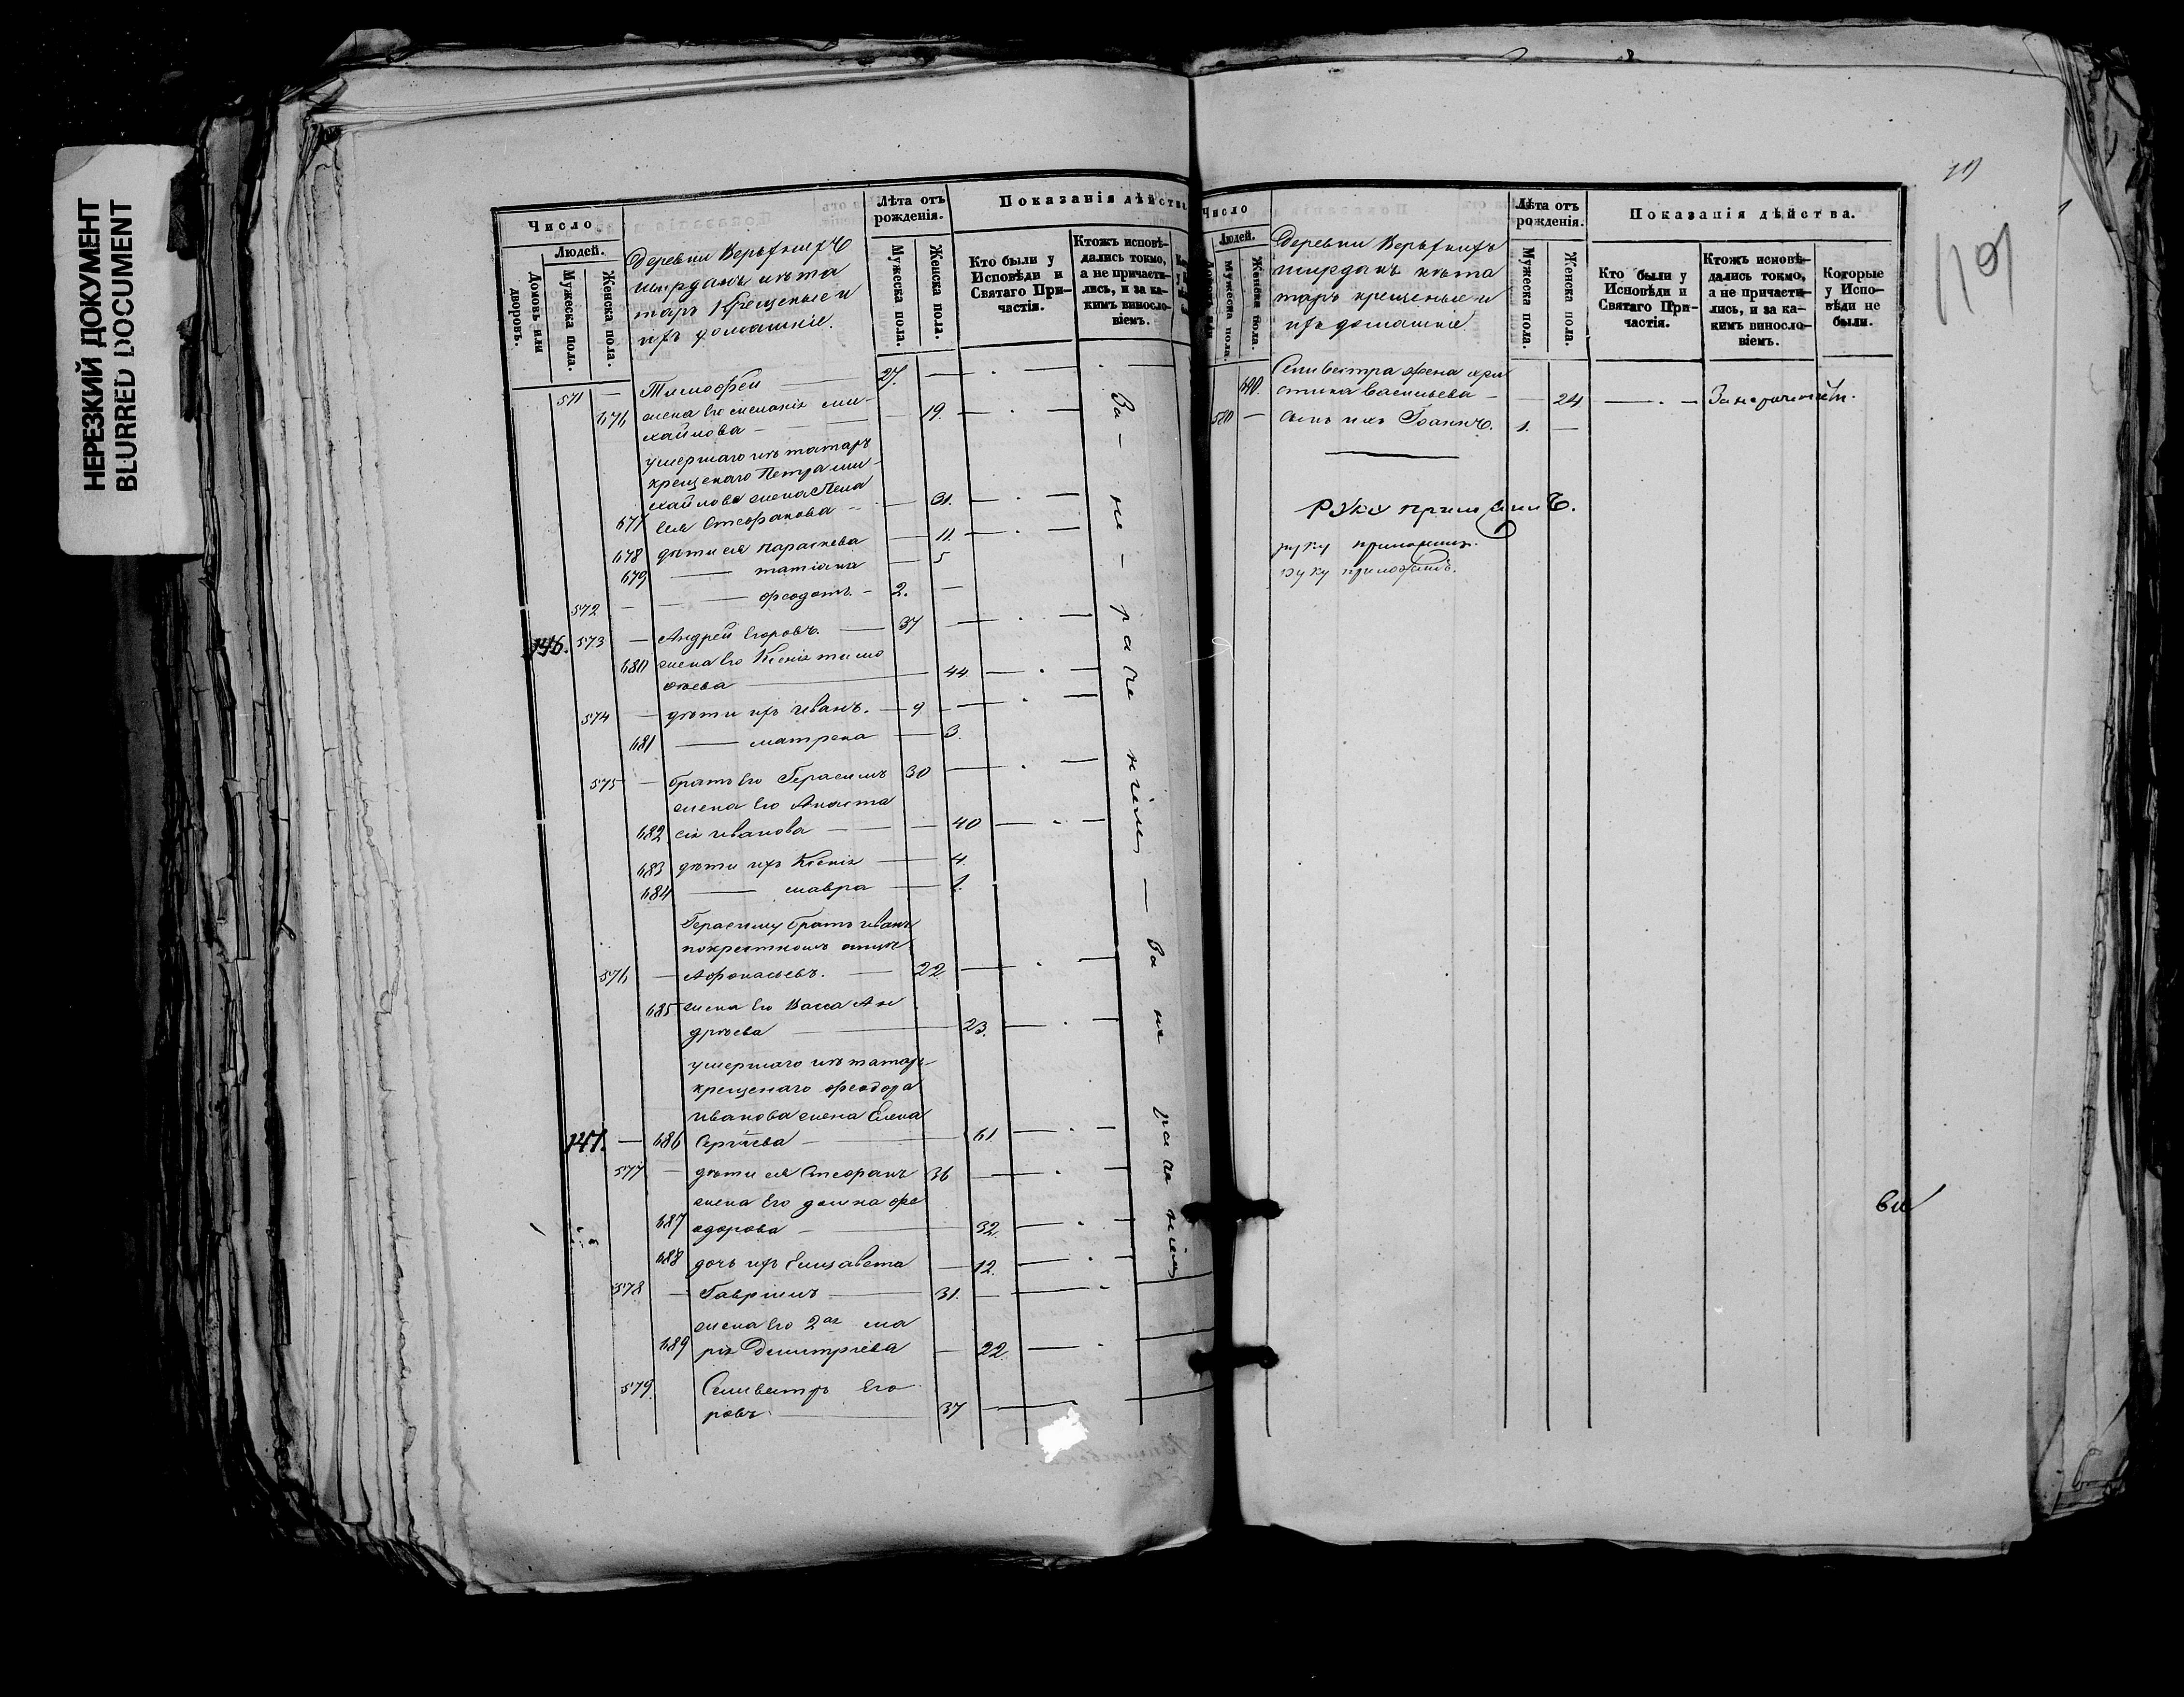 НЕРЕЗКИЙ ДОКУМЕНТ
BLURRED DOCUMENT
Число
Людей.
Домовъ или дворовъ.
Мужеска пола.
Женска пола.
Деревни Верьхнихъ
ширданъ изъ та
таръ Крещеные и
ихъ домашніе.
Лѣта отъ рожденія.
Мужеска пола.
Женска пола.
Показанія дѣйства
Кто были у Исповѣди и Святаго Причастія.
Ктожъ исповѣдались токмо, а не причастились, и за какимъ винословіемъ.
571 — Тимоѳей — 27.
676 жена его меланія ми
хайлова — 19.
умершаго изъ татаръ
крещенаго Петра ми
хайлова жена Пела
677 гея Стефанова — 31.
678 дѣти ея параскева — 11.
679 — татіана — 5
572 — ѳеодотъ. — 2.
146. 573 — Андрей Егоровъ. — 37
680 жена его Ксенія тимо
ѳеева — 44
574 — дѣти ихъ иванъ. — 9
681 — матрена — 3.
575 — братъ его Герасимъ 30
жена его Анаста
682 сія иванова — 40
683 дѣти ихъ Ксенія — 4.
684 — мавра — 1.
Герасиму братъ иванъ
покрестномъ отцѣ
576 — Афонасьевъ. — 22
685 жена его Васса Ан
дрѣева — 23.
умершаго изъ татаръ
крещенаго ѳеодора
иванова жена Елена
147. — 686 Сергѣева — 61
577 — дѣти ея Стефанъ 36
жена его домна ѳе
687 одорова — 32.
688 дочь ихъ Елизавета — 12.
578 — Гавріилъ — 31.
жена его 2ая ма
689 рія Димитріева — 22.
579. Селиверстръ Его
ровъ — 37
За — не — раче ніемъ — За не раче ніемъ
119
Число
Людей.
Мужеска пола.
Женска пола.
Деревни Верьхнихъ
ширданъ изъ та
таръ крещеные и
ихъ домашніе
Лѣта отъ рожденія.
Мужеска пола.
Женска пола.
Показанія дѣйства.
Кто были у Исповѣди и Святаго Причастія.
Ктожъ исповѣдались токмо, а не причастились, и за какимъ винословіемъ.
Которые у Исповѣди не были.
Селивестра жена хри
690. стина Васильева — 24 — За нерачениемъ.
580 — сынъ ихъ Іоаннъ. 1. —
Руку приложилъ.
руку приложилъ.
руку приложилъ.